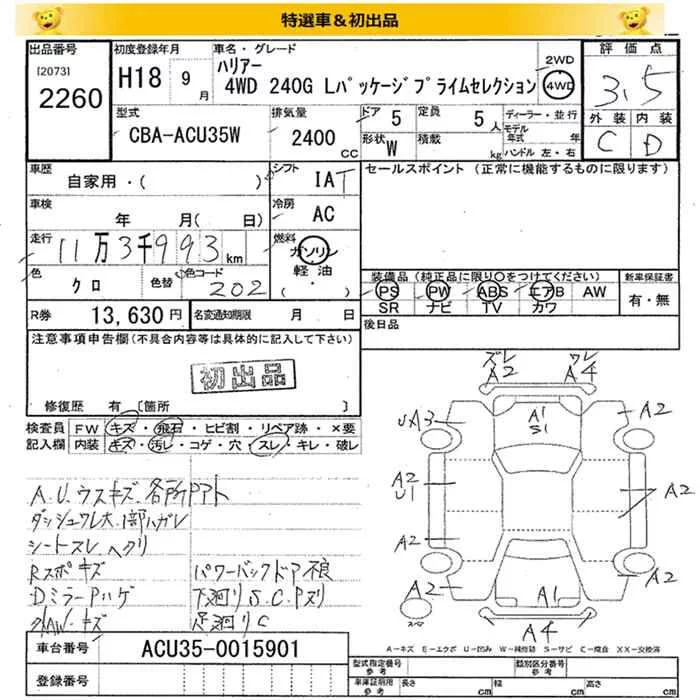 特選車＆初出品
出品番号 初度登録年月 車名・グレード 評価点
[2073] 2260 H18 9月 ハリアー 2WD
4WD 240G Lパッケージプライムセレクション 4WD 3.5
型式 排気量 ドア 5 定員 5人 ディーラー・並行 外装 内装
CBA-ACU35W 2400cc 形状 W 積載 kg モデル年式 年 C D
ハンドル 左・右
車歴 シフト セールスポイント (正常に機能するものに限ります)
自家用・( ) IAT
車検 冷房
年 月( 日) AC
走行 11万3千993km 燃料 ガソリン
軽油
(・)
色 クロ 色替 色コード 202
装備品 (純正品に限り○をつけてください) 新車保証書
PS PW ABS エアB AW 有・無
SR ナビ TV カワ
R券 13,630円 名変通知期限 月 日 後日品
注意事項申告欄 (不具合内容等は具体的に記入して下さい)
初出品
修復歴 有 [箇所 ]
検査員 FW キズ・飛石・ヒビ割・リペア跡・×要
記入欄 内装 キズ・汚レ・コゲ・穴・スレ・キレ・破レ
A.U.ウスキズ.各所Pアト
ダッシュワレ大.1部ハガレ
シートスレ ヘタリ
Rスポキズ パワーバックドア不良
DミラーPハゲ 下廻りS.C.Pヌリ
AW.キズ 足廻りC
ズレ ワレ
A2 A4
UA3 A1 A2
S1
A2 A2
U1
A2
A2 A1 A2
スペア
A4
A－キズ E－エクボ U－凹み W－補修跡 S－サビ C－腐食 XX－交換済
車台番号 ACU35-0015901
登録番号
型式指定番号 参考 類別区分番号 参考
車庫証明用 参考 長さ cm 幅 cm 高さ cm